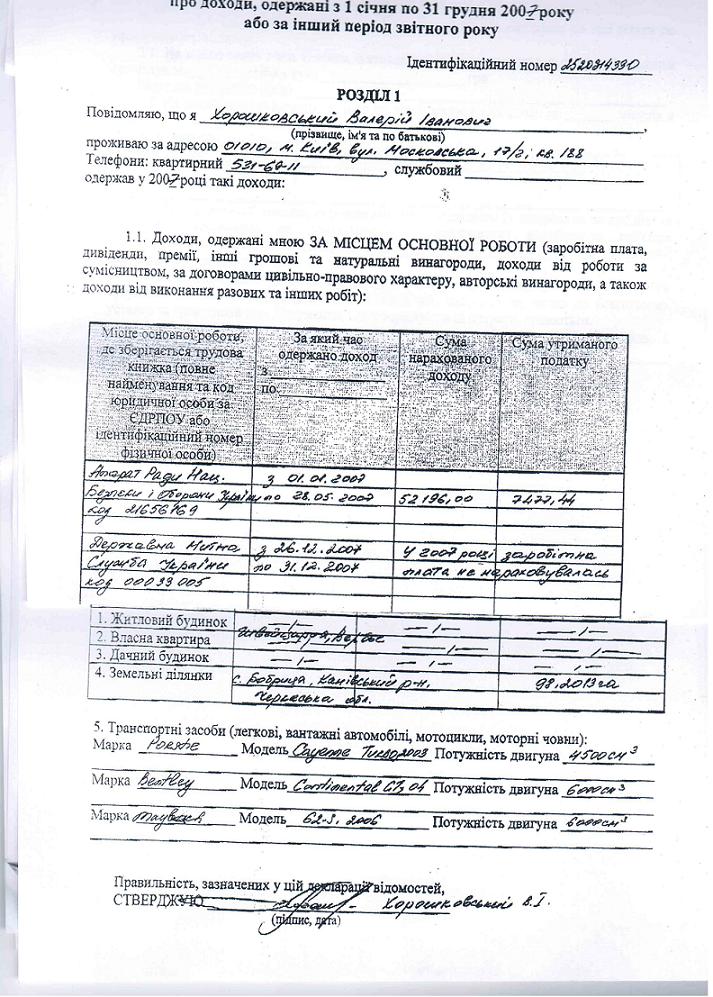 про доходи, одержані з 1 січня по 31 грудня 2007 року
або за інший період звітного року
Ідентифікаційний номер 2520814390
РОЗДІЛ 1
Повідомляю, що я Хорошковський Валерій Іванович,
(прізвище, ім'я та по батькові)
проживаю за адресою 01010, м. Київ, вул. Московська, 17/2, кв. 188
Телефони: квартирний 531-60-11, службовий
одержав у 2007 році такі доходи:
1.1. Доходи, одержані мною ЗА МІСЦЕМ ОСНОВНОЇ РОБОТИ (заробітна плата,
дивіденди, премії, інші грошові та натуральні винагороди, доходи від роботи за
сумісництвом, за договорами цивільно-правового характеру, авторські винагороди, а також
доходи від виконання разових та інших робіт):
Місце основної роботи, За який час Сума Сума утриманого
де зберігається трудова одержано доход нарахованого податку
книжка (повне з доходу
найменування та код по
юридичної особи за
ЄДРПОУ або
ідентифікаційний номер
фізичної особи)
Апарат Ради Нац. з 01.01.2007
Безпеки і Оборони України по 28.05.2007 52196,00 7477,44
код 21656769
Державна Митна з 26.12.2007 У 2007 році заробітна
Служба України по 31.12.2007 плата не нараховувалась
код 00033005
1. Житловий будинок —/— —/— —/—
2. Власна квартира —/— —/—
3. Дачний будинок —/— —/— —/—
4. Земельні ділянки с. Бобриця, Канівський р-н, 98,2013 га
Черкаська обл.
5. Транспортні засоби (легкові, вантажні автомобілі, мотоцикли, моторні човни):
Марка Porsche Модель Cayenne Turbo, 2003 Потужність двигуна 4500 см³
Марка Bentley Модель Continental GT, 04 Потужність двигуна 6000 см³
Марка Maybach Модель 62-S, 2006 Потужність двигуна 6000 см³
Правильність, зазначених у цій декларації відомостей,
СТВЕРДЖУЮ Хорошковський В.І.
(підпис, дата)